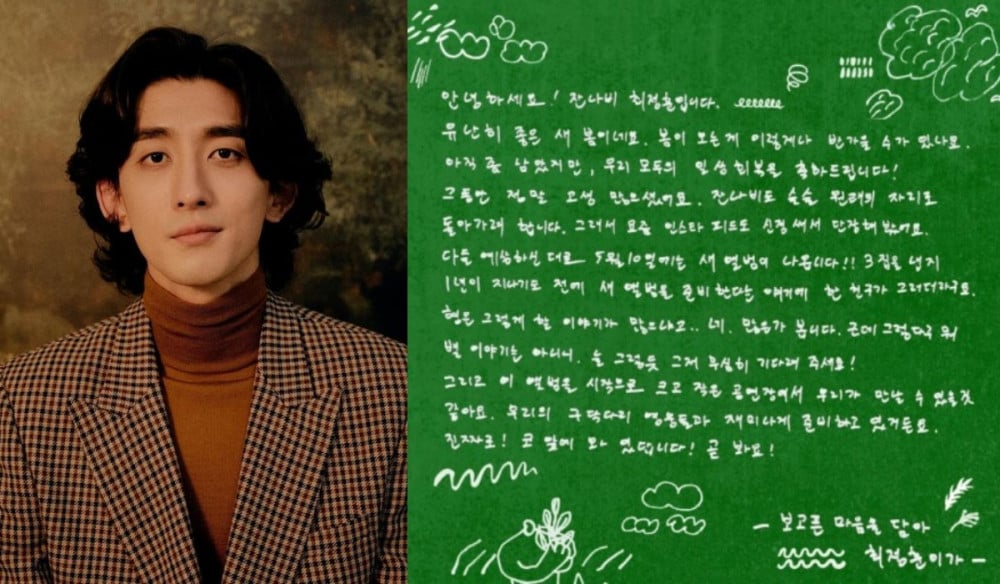 안녕하세요! 잔나비 최정훈입니다.
유난히 좋은 새 봄이네요. 봄이 오는게 이렇게나 반가울 수가 있나요.
아직 좀 남았지만, 우리 모두의 일상회복을 축하드립니다!
그동안 정말 고생 많으셨어요. 잔나비도 슬슬 원래의 자리로
돌아가려 합니다. 그래서 요즘 인스타 피드도 신경써서 단장해 봤어요.
다들 예상하신 대로 5월 10일에는 새 앨범이 나옵니다!! 3집을 낸지
1년이 지나기도 전에 새 앨범을 준비한다는 얘기에 한 친구가 그러더라구요.
형은 그렇게 할 이야기가 많으냐고.. 네. 많은가 봅니다. 근데 그렇다구 뭐
별 이야기는 아니니. 늘 그렇듯 그저 무심히 기다려 주세요!
그리고 이 앨범을 시작으로 크고 작은 공연장에서 우리가 만날 수 있을것
같아요. 우리의 구닥다리 영웅들과 재미나게 준비하고 있거든요.
진짜로! 코 앞에 와 있답니다! 곧 봐요!
- 보고픈 마음을 담아
최정훈이가 -